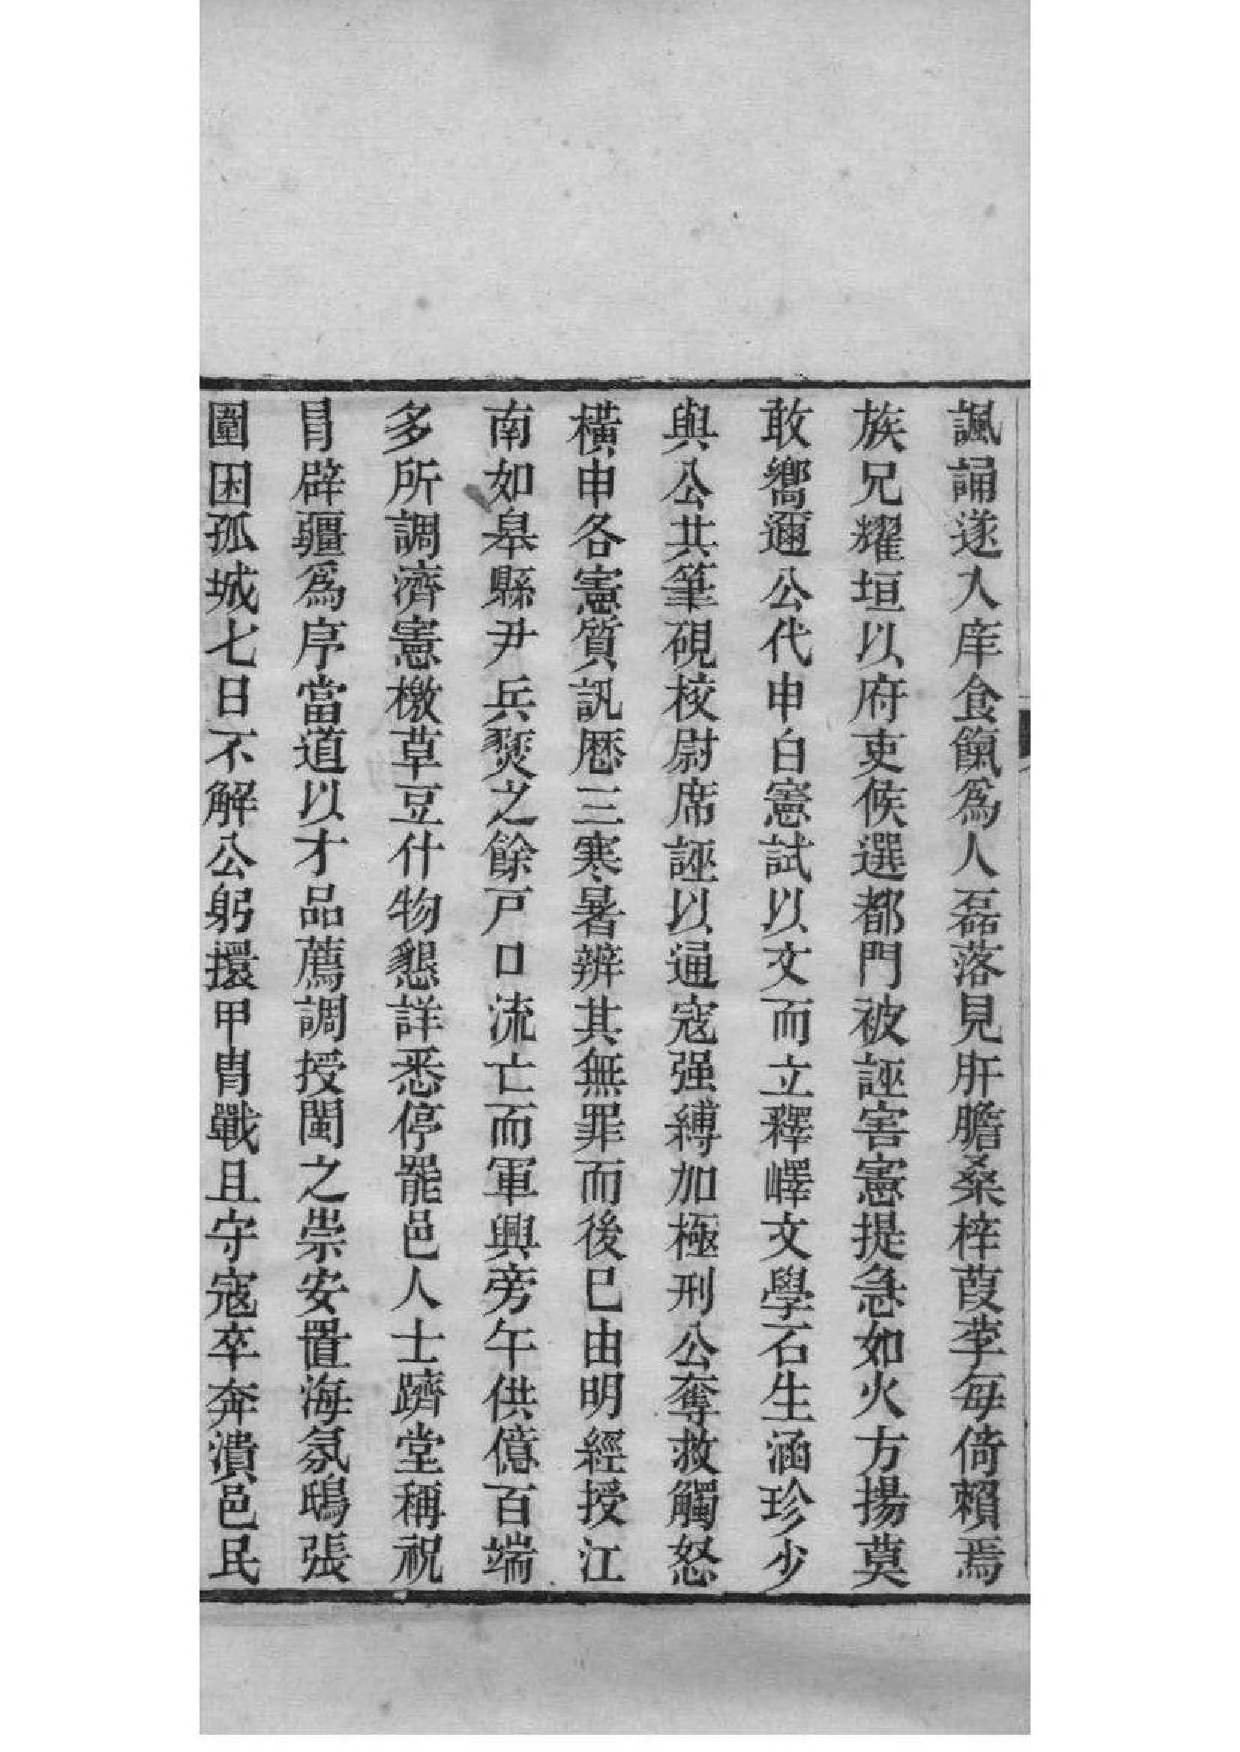 諷誦遂入庠食餼爲人磊落見肝膽桑梓葭莩每倚賴焉
族兄耀垣以府吏候選都門被誣害憲提急如火方揚莫
敢嚮邇公代申白憲試以文而立釋嶧文學石生涵珍少
與公共筆硯校尉席誣以通寇强縛加極刑公奪救觸怒
橫申各憲質訊歷三寒暑辨其無罪而後已由明經授江
南如皋縣尹兵燹之餘戸口流亡而軍興旁午供億百端
多所調濟憲檄草豆什物懇詳悉停罷邑人士躋堂稱祝
肙辟疆爲序當道以才品薦調授閩之崇安置海氛鴟張
圍困孤城七日不解公躬擐甲冑戰且守寇卒奔潰邑民